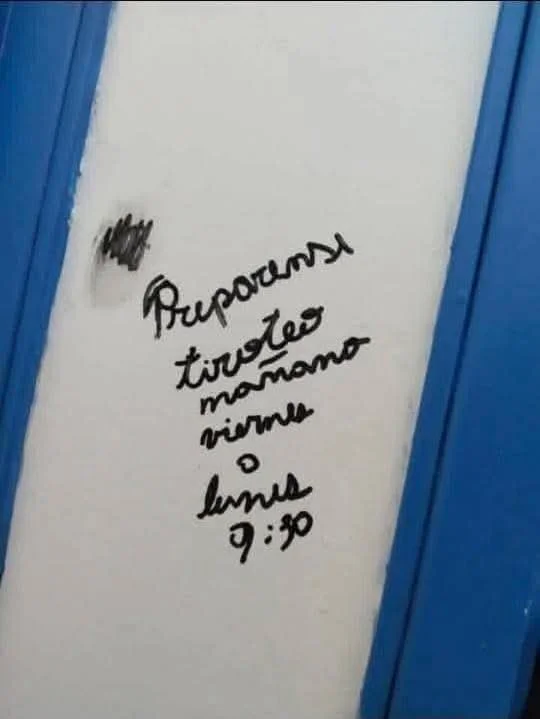 Preparense
tiroteo
mañana
viernes
o
lunes
9:30